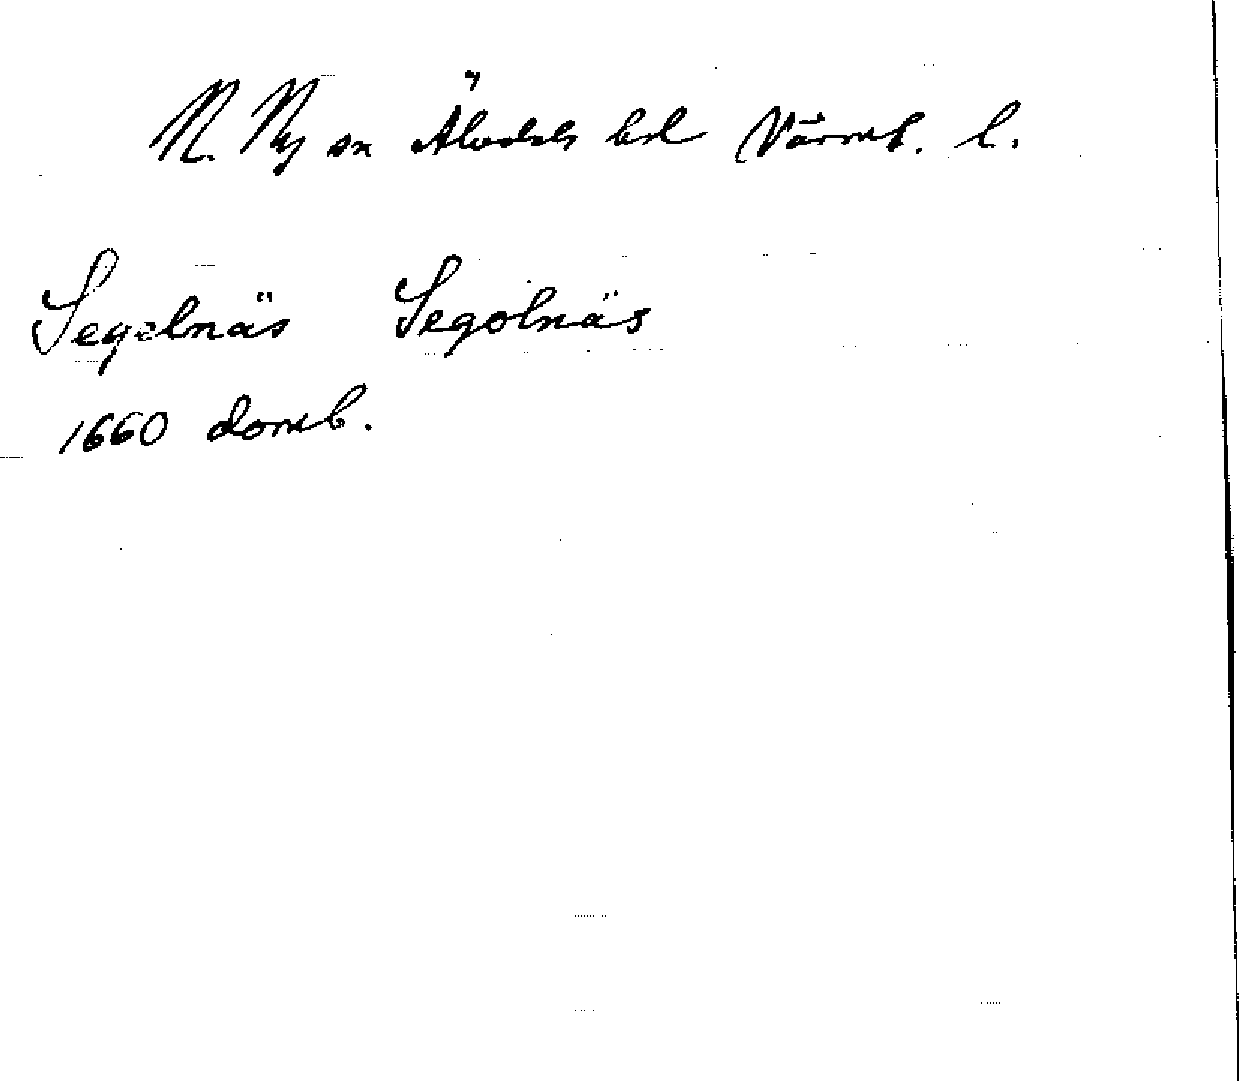 N. Ny sn Älvdals hd Värml. l.
Segelnäs Segolnäs
1660 domb.